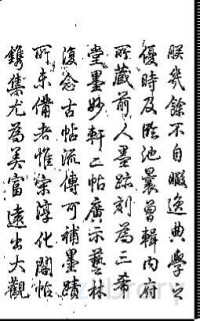 朕幾餘不自暇逸典學之
優時及臨池曩曾輯內府
所藏前人墨跡刻為三希
堂墨妙軒二帖廣示藝林
復念古帖流傳可補墨蹟
所未備者惟宋淳化閣帖
鐫集尤為美富遠出大觀